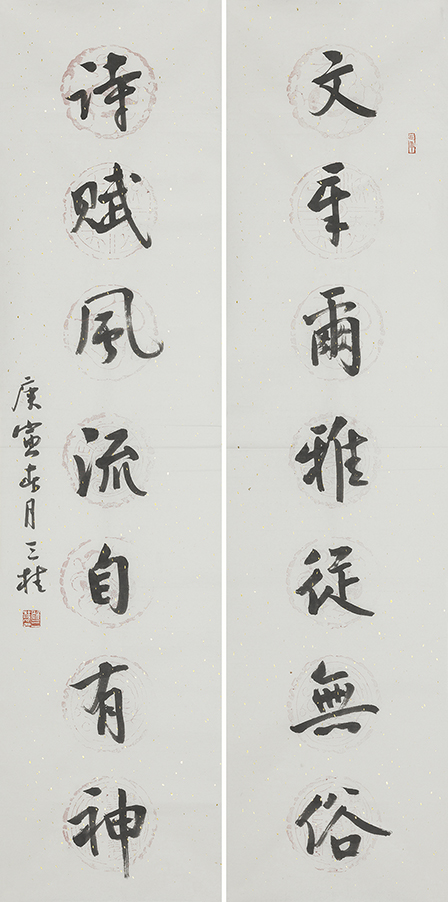 文章爾雅從無俗
詩賦風流自有神
庚寅春月三桂